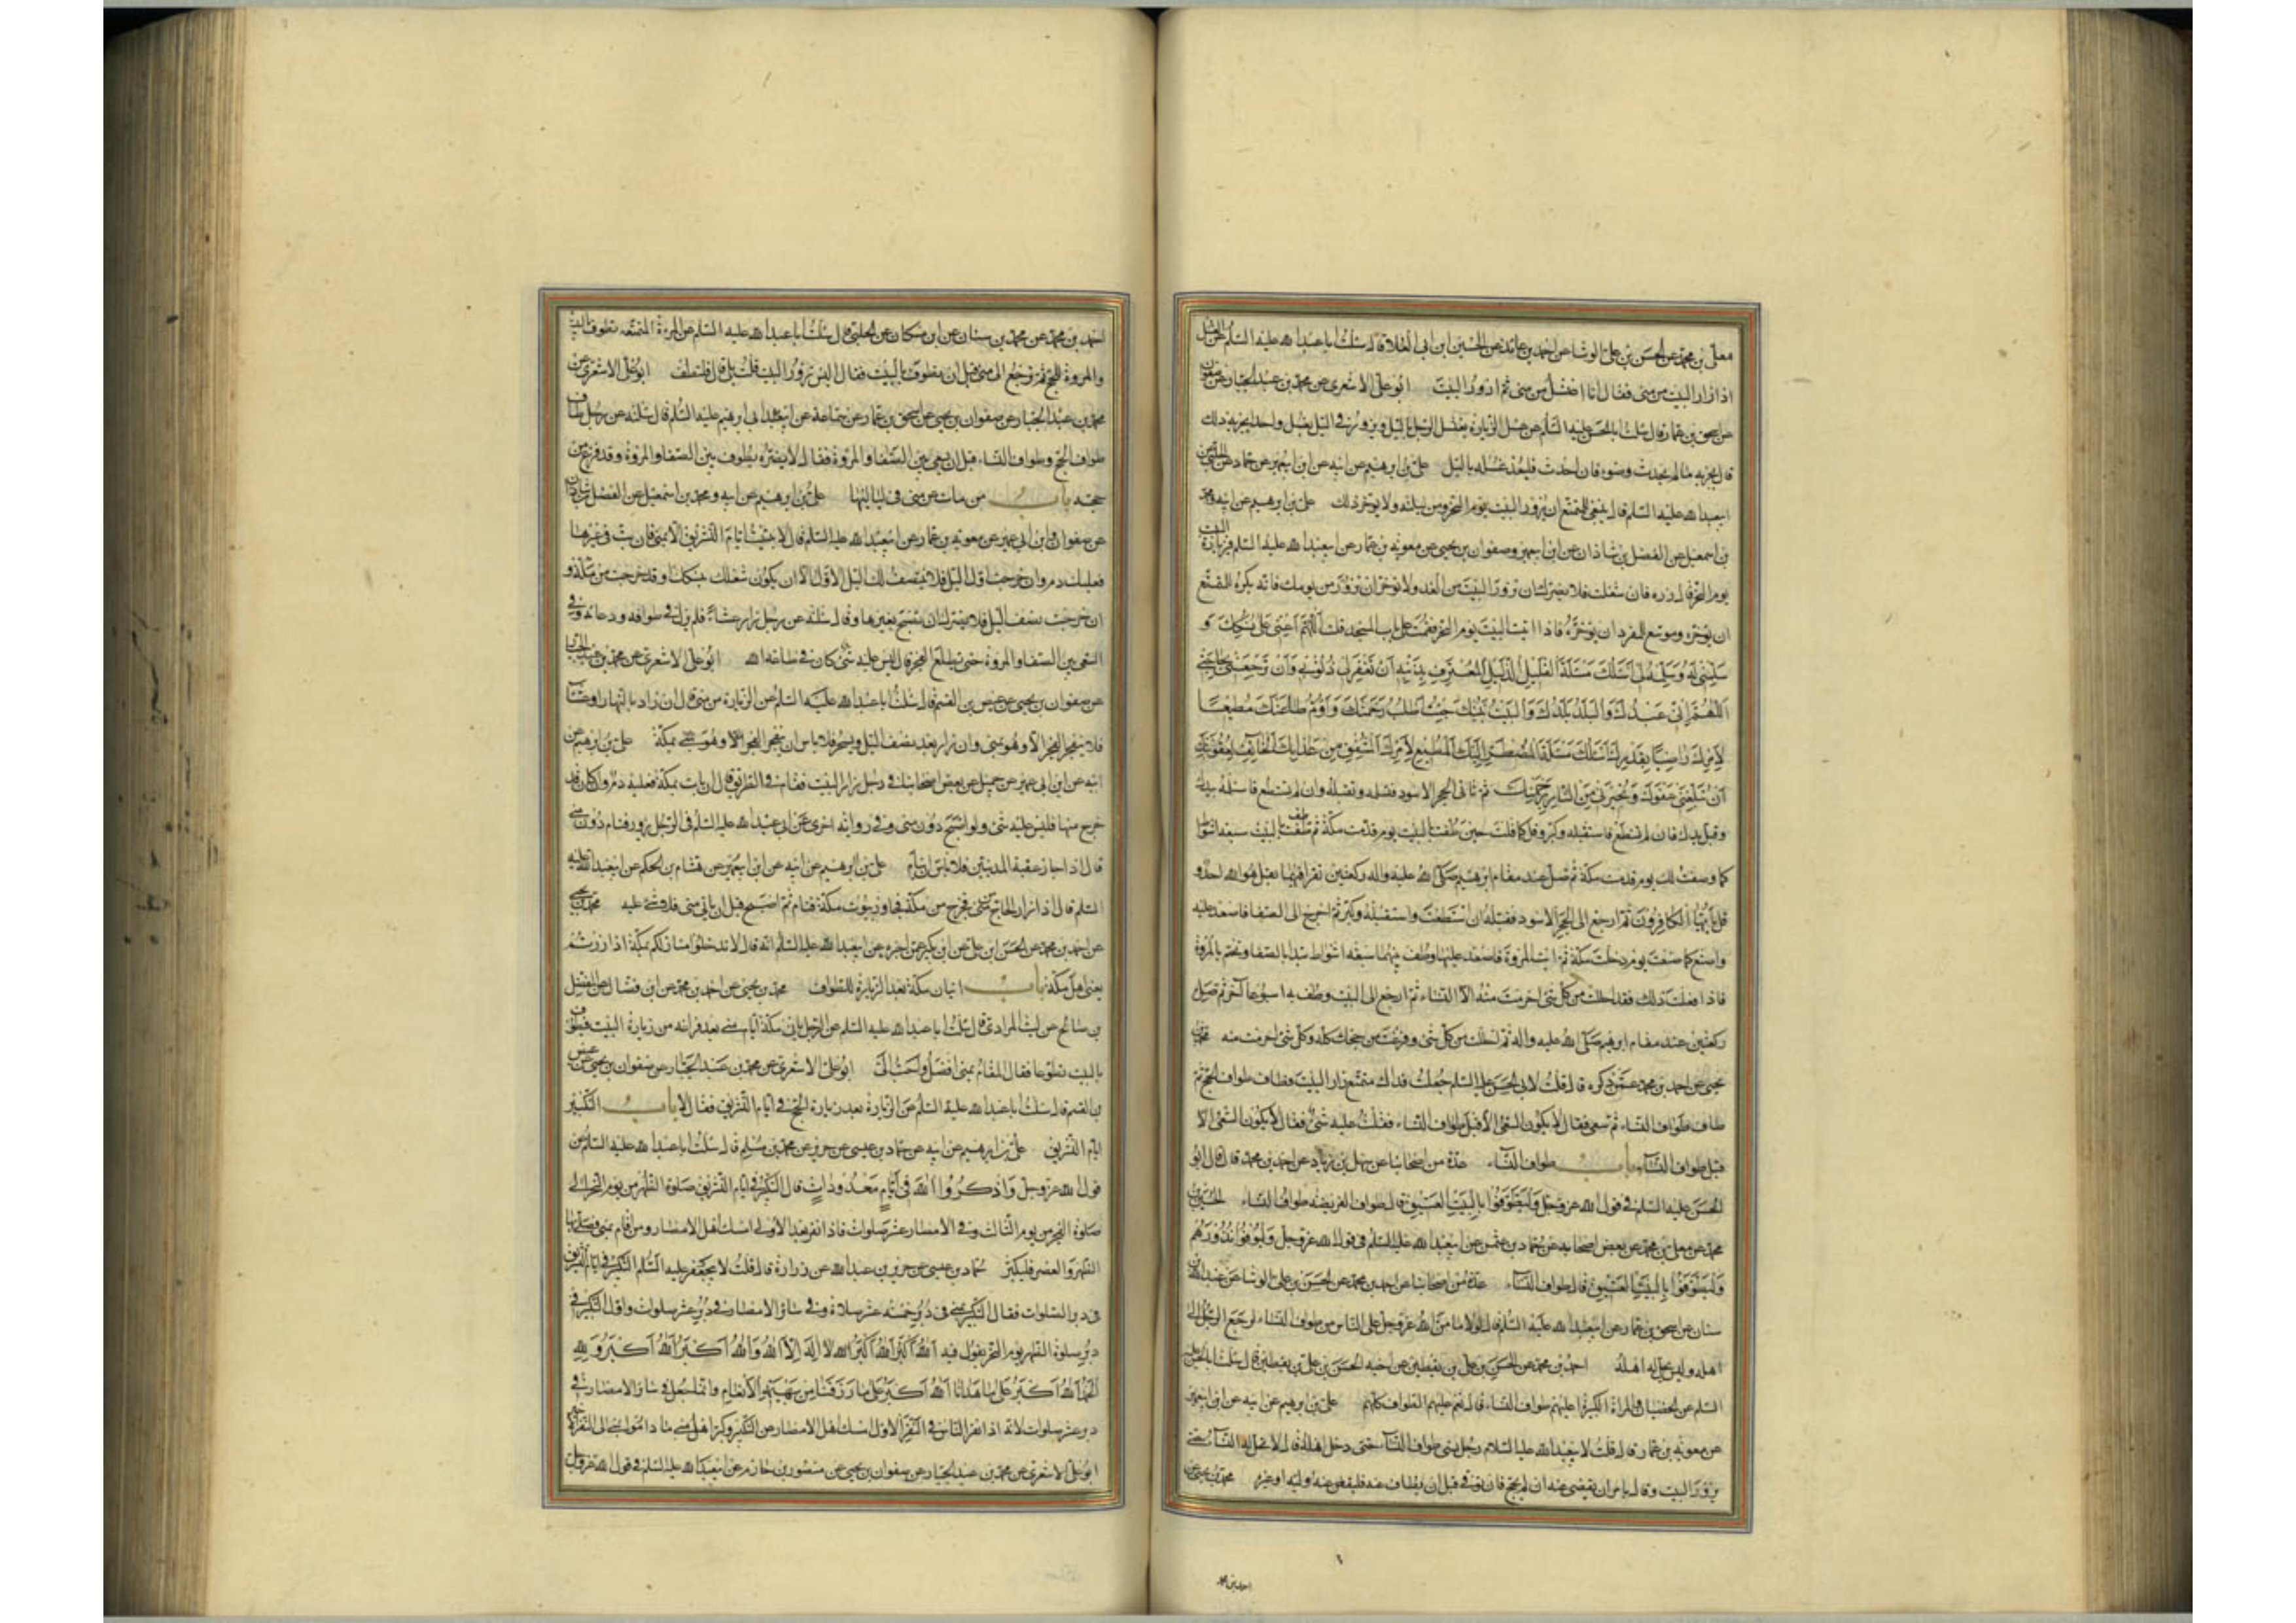 معلى بن محمد عن الحسن بن علي الوشا عن احمد بن عائذ عن الحسين ابن ابي العلا قال سئلت ابا عبد الله عليه السلم عن الغسل
اذا زار البيت من منى فقال انا اغتسل من منى ثم ازور البيت ابو علي الاشعري عن محمد بن عبد الجبار عن صفوان
عن اسحق بن عمار قال سئلت ابا الحسن عليه السلم عن غسل الزيارة يغتسل الرجل بالليل ويزور في الليل بغسل واحد ايجزيه ذلك
قال يجزيه ما لم يحدث وضوء فان احدث فليعد غسله بالليل علي بن ابرهيم عن ابيه عن ابن ابي عمير عن حماد عن الحلبي عن
ابي عبد الله عليه السلم قال ينبغي للمتمتع ان يزور البيت يوم النحر ومن ليلته ولا يؤخر ذلك علي بن ابرهيم عن ابيه ومحمد
بن اسمعيل عن الفضل بن شاذان عن ابن ابي عمير وصفوان بن يحيى عن معوية بن عمار عن ابي عبد الله عليه السلم في زيارة البيت
يوم النحر قال زره فان شغلت فلا يضرك ان تزور البيت من الغد ولا تؤخر ان تزور من يومك فانه يكره للمتمتع
ان يؤخره وموسع للمفرد ان يؤخره فاذا اتيت البيت يوم النحر فقمت على باب المسجد قلت اللهم اعني على نسكك و
سلمني له وسلمه لي اسئلك مسئلة العليل الذليل المعترف بذنبه ان تغفر لي ذنوبي وان ترجعني بحاجتي
اللهم اني عبدك والبلد بلدك والبيت بيتك جئت اطلب رحمتك واؤم طاعتك متبعا
لامرك راضيا بقدرك اسئلك مسئلة المضطر اليك المطيع لامرك المشفق من عذابك الخائف لعقوبتك
ان تبلغني عفوك وتجيرني من النار برحمتك ثم تاتي الحجر الاسود فتستلمه وتقبله فان لم تستطع فاستلمه بيدك
وقبل يدك فان لم تستطع فاستقبله وكبر وقل كما قلت حين طفت بالبيت يوم قدمت مكة ثم طف بالبيت سبعة اشواط
كما وصفت لك يوم قدمت مكة ثم صل عند مقام ابرهيم صلى الله عليه واله ركعتين تقرا فيهما بقل هو الله احد و
قل يا ايها الكافرون ثم ارجع الى الحجر الاسود فقبله ان استطعت واستقبله وكبر ثم اخرج الى الصفا فاصعد عليه
واصنع كما صنعت يوم دخلت مكة ثم ائت المروة فاصعد عليها وطف بينهما سبعة اشواط تبدا بالصفا وتختم بالمروة
فاذا فعلت ذلك فقد احللت من كل شئ احرمت منه الا النساء ثم ارجع الى البيت وطف به اسبوعا آخر ثم تصلي
ركعتين عند مقام ابرهيم صلى الله عليه واله ثم احللت من كل شئ وفرغت من حجك كله وكل شئ احرمت منه محمد بن
يحيى عن احمد بن محمد عمن ذكره قال قلت لابي الحسن عليه السلم جعلت فداك متمتع زار البيت فطاف طواف الحج ثم
طاف طواف النساء ثم سعى فقال لا يكون السعي الا قبل طواف النساء فقلت عليه شئ فقال لا يكون السعي الا
قبل طواف النساء باب طواف النساء عدة من اصحابنا عن سهل بن زياد عن احمد بن محمد قال قال ابو
الحسن عليه السلم في قول الله عز وجل وليطوفوا بالبيت العتيق قال طواف الفريضة طواف النساء الحسين بن
محمد عن معلى بن محمد عن بعض اصحابه عن حماد بن عثمن عن ابي عبد الله عليه السلم في قول الله عز وجل وليوفوا نذورهم
وليطوفوا بالبيت العتيق قال طواف النساء عدة من اصحابنا عن احمد بن محمد عن الحسن بن علي الوشا عن عبد الله بن
سنان عن اسحق بن عمار عن ابي عبد الله عليه السلم قال لولا ما من الله عز وجل على الناس من طواف النساء لرجع الرجل الى
اهله وليس يحل له اهله احمد بن محمد عن الحسن بن علي بن يقطين عن اخيه الحسين بن علي بن يقطين قال سئلت ابا الحسن عليه
السلم عن الخصيان والمراة الكبيرة اعليهم طواف النساء قال نعم عليهم الطواف كلهم علي بن ابرهيم عن ابيه عن ابن ابي عمير
عن معوية بن عمار قال قلت لابي عبد الله عليه السلام رجل نسي طواف النساء حتى دخل اهله قال لا تحل له النساء حتى
يزور البيت وقال يامر ان يقضى عنه ان لم يحج فان توفي قبل ان يطاف عنه فليقض عنه وليه او غيره محمد بن يحيى عن
احمد بن محمد
احمد بن محمد عن محمد بن سنان عن ابن مسكان عن الحلبي قال سئلت ابا عبد الله عليه السلم عن المرءة المتمتعة تطوف بالبيت
والمروة للحج ثم ترجع الى منى قبل ان تطوف بالبيت فقال اليس تزور البيت قلت بلى قال فلتطف ابو علي الاشعري عن
محمد بن عبد الجبار عن صفوان بن يحيى عن اسحق بن عمار عن سماعة عن ابي ابرهيم عليه السلم قال سئلته عن رجل طاف
طواف الحج وطواف النساء قبل ان يسعى بين الصفا والمروة فقال لا يضره يطوف بين الصفا والمروة وقد فرغ من
حجه باب من بات عن منى في لياليها علي بن ابرهيم عن ابيه ومحمد بن اسمعيل عن الفضل بن شاذان
عن صفوان وابن ابي عمير عن معوية بن عمار عن ابي عبد الله عليه السلم قال لا تبت ايام التشريق الا بمنى فان بت في غيرها
فعليك دم وان خرجت اول الليل فلا ينتصف لك الليل الا وانت بمنى الا ان يكون شغلك بنسكك او قد خرجت من مكة و
ان خرجت نصف الليل فلا يضرك ان تصبح بغيرها وقال سئلته عن رجل زار عشاء فلم يزل في طوافه ودعائه وفي
السعي بين الصفا والمروة حتى يطلع الفجر قال ليس عليه شئ كان في طاعة الله ابو علي الاشعري عن محمد بن عبد الجبار
عن صفوان بن يحيى عن عيص بن القسم قال سئلت ابا عبد الله عليه السلم عن الزيارة من منى قال ان زار بالنهار او عشاء
فلا ينفجر الفجر الا وهو بمنى وان زار بعد نصف الليل وبسحر فلا باس ان ينفجر الفجر الا وهو بمكة علي بن ابرهيم عن
ابيه عن ابن ابي عمير عن جميل عن بعض اصحابنا في رجل زار البيت فنام في الطريق قال ان بات بمكة فعليه دم وان كان قد
خرج منها فليس عليه شئ ولو اصبح دون منى وفي رواية اخرى عن ابي عبد الله عليه السلم في الرجل يزور فينام دون منى
قال اذا جاز عقبة المدنيين فلا باس ان ينام علي بن ابرهيم عن ابيه عن ابن ابي عمير عن هشام بن الحكم عن ابي عبد الله عليه
السلم قال اذا زار الحاج من منى فخرج من مكة فجاوز بيوت مكة فنام ثم اصبح قبل ان ياتي منى فلا شئ عليه محمد بن يحيى
عن احمد بن محمد عن الحسن ابن علي عن ابن بكير عمن اخبره عن ابي عبد الله عليه السلم انه قال لا تدخلوا منازلكم بمكة اذا زرتم
يعني اهل مكة باب اتيان مكة بعد الزيارة للطواف محمد بن يحيى عن احمد بن محمد عن ابن فضال عن المفضل
بن صالح عن ليث المرادي قال سئلت ابا عبد الله عليه السلم عن الرجل ياتي مكة ايام منى بعد فراغه من زيارة البيت فيطوف
بالبيت تطوعا فقال المقام بمنى افضل واحب الي ابو علي الاشعري عن محمد بن عبد الجبار عن صفوان بن يحيى عن عيص
بن القسم قال سئلت ابا عبد الله عليه السلم عن الزيارة بعد زيارة الحج في ايام التشريق فقال لا باب التكبير
ايام التشريق علي بن ابرهيم عن ابيه عن حماد بن عيسى عن حريز عن محمد بن مسلم قال سئلت ابا عبد الله عليه السلم عن
قول الله عز وجل واذكروا الله في ايام معدودات قال التكبير في ايام التشريق صلوة الظهر من يوم النحر الى
صلوة الفجر من يوم الثالث وفي الامصار عشر صلوات فاذا نفر بعد الاولى امسك اهل الامصار ومن اقام بمنى فصلى بها
الظهر والعصر فليكبر حماد بن عيسى عن حريز بن عبد الله عن زرارة قال قلت لابي جعفر عليه السلم التكبير في ايام التشريق
في دبر الصلوات فقال التكبير بمنى في دبر خمسة عشر صلاة وفي سائر الامصار في دبر عشر صلوات واول التكبير في
دبر صلوة الظهر يوم النحر يقول فيه الله اكبر الله اكبر لا اله الا الله والله اكبر الله اكبر ولله
الحمد الله اكبر على ما هدانا الله اكبر على ما رزقنا من بهيمة الانعام وانما جعل في سائر الامصار في
دبر عشر صلوات لانه اذا نفر الناس في النفر الاول امسك اهل الامصار عن التكبير وكبر اهل منى ما داموا بمنى الى النفر الاخير
ابو علي الاشعري عن محمد بن عبد الجبار عن صفوان بن يحيى عن منصور بن حازم عن ابي عبد الله عليه السلم في قول الله عز وجل